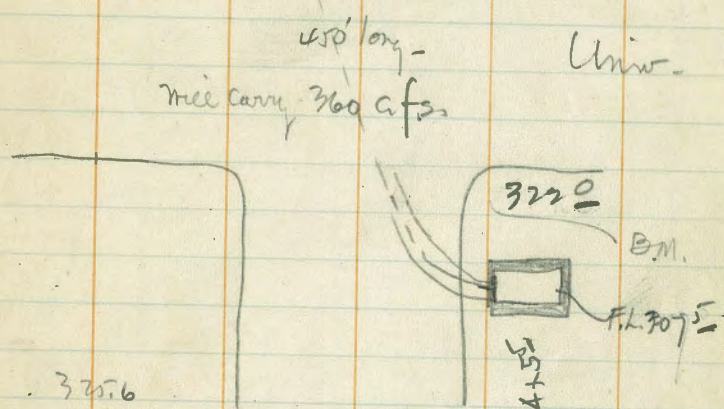 450' long-
Univ-
will carry 360 c.f.s.
322 0
B.M.
F.L. 307 5
4+55
325.6